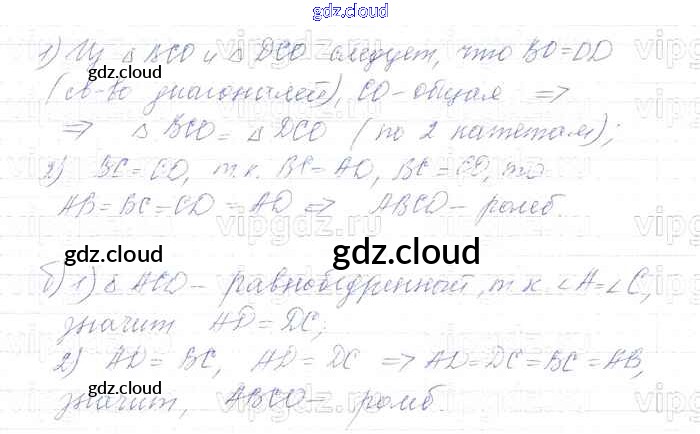 gdz.cloud
1) Из △ BCO и △ DCO следует, что BO=OD
gdz.cloud
(св-во диагоналей), CO-общая ⇒
⇒ △ BCO = △ DCO (по 2 катетам);
2) BC=CD, т.к. BC=AD, BC=CD, то
AB=BC=CD=AD ⇒ ABCD- ромб.
gdz.cloud
gdz.cloud
б) 1) △ ACD- равнобедренный, т.к. ∠A=∠C,
значит AD=DC;
2) AD=BC, AD=DC ⇒ AD=DC=BC=AB,
gdz.cloud
gdz.cloud
значит, ABCD- ромб.